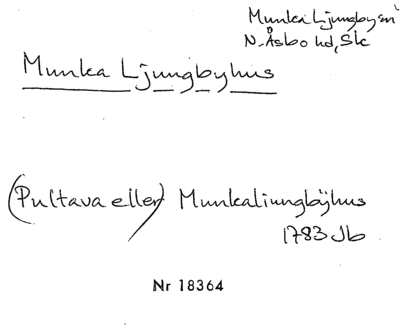 Munka Ljungby sn
N. Åsbo hd, Sk
Munka Ljungbyhus
(Pultava eller) Munkaliungbÿhus
1783 Jb
Nr 18364